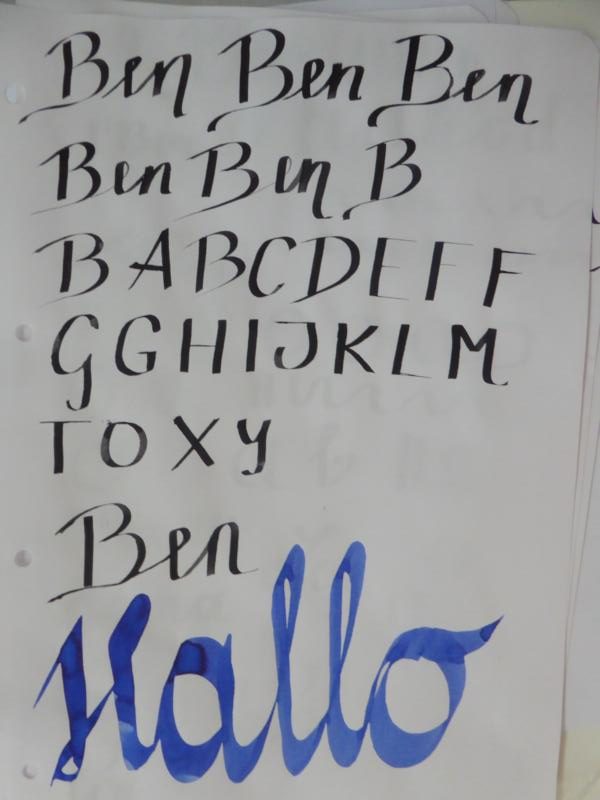 Ben Ben Ben
Ben Ben B
B A B C D E F F
G G H I J K L M
T O X Y
Ben
Hallo